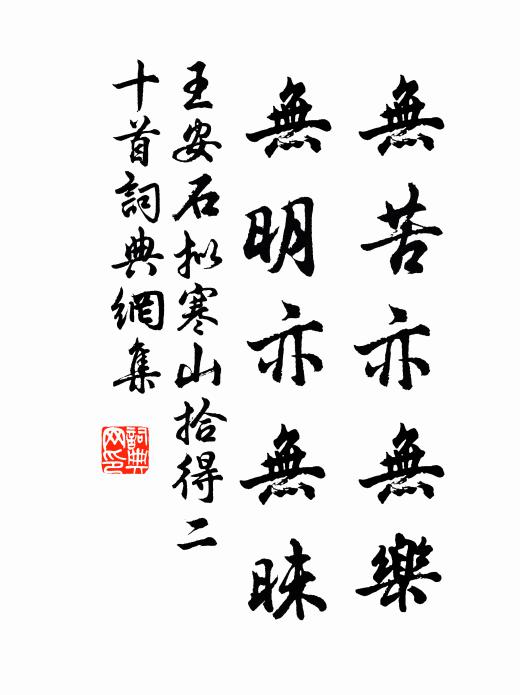 無苦亦無樂
無明亦無昧
王安石拟寒山拾得二
十首詞典網集
詞典
网印